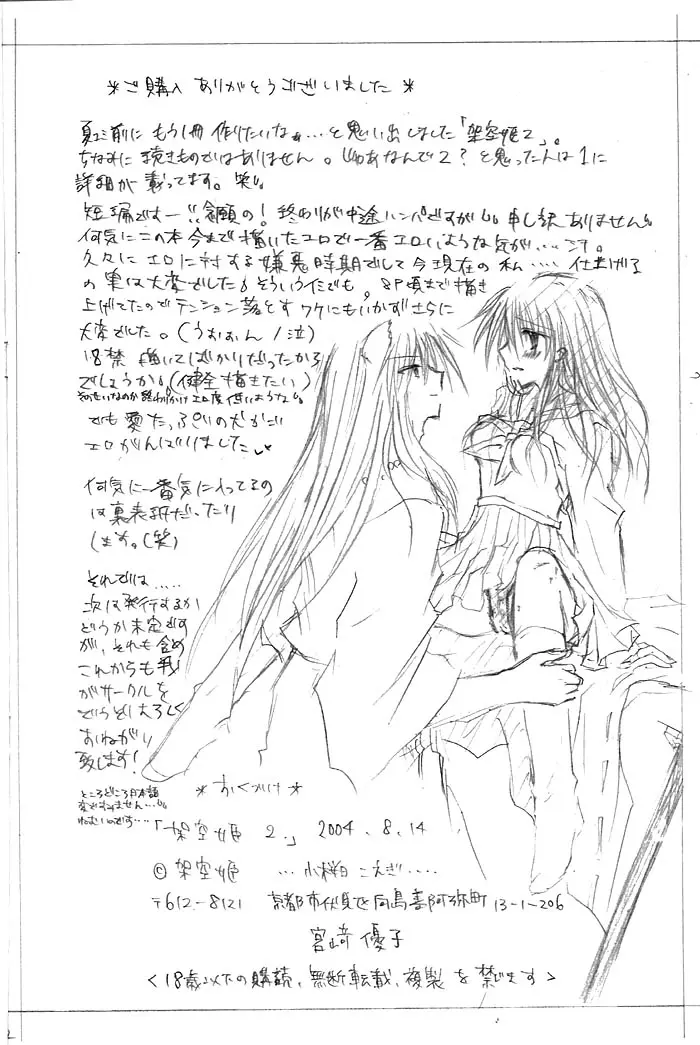 *ご購入 ありがとうございました*
夏コミ前に もう1冊 作りたいなぁ…と思い出しました「架空姫2」。
ちなみに 続きものではありません。じゃあなんで2？と思った人は1に
詳細が 載ってます。笑
短編ですー!!念願の！終わりが中途ハンパですが 申し訳ありません
何気にこの本今まで描いたエロで一番エロいような気が……
久々に エロに対する嫌悪時期でして今現在の私…… 仕上げる
の実は大変でした そういうイミでも。8P頃まで描き
上げてたのでテンション落とすワケにもいかずさらに
大変でした。(うおぉん/泣)
18禁 描いてばかりだったから
でしょうか (健全描きたい)
でも愛たっぷり
エロがんばりました
何気に一番気に入ってるの
は裏表紙だったり
します。(笑)
それでは.....
次は発行するか
どうか未定です
が、それも含め
これからも我
がサークルを
どうぞよろしく
おねがい
致します！
ところどころ日本語
変ですみません…
ねむいのです…
*おくづけ*
「架空姫 2.」 2004.8.14
© 架空姫 …小桜 こえぎ…..
〒612-8121 京都市伏見区向島善阿弥町13-1-206
宮﨑 優子
<18歳以下の購読、無断転載、複製を禁じます>